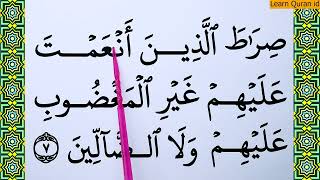 Learn Quran id
صِرَٰطَ ٱلَّذِينَ أَنۡعَمۡتَ
عَلَيۡهِمۡ غَيۡرِ ٱلۡمَغۡضُوبِ
عَلَيۡهِمۡ وَلَا ٱلضَّآلِّينَ ٧